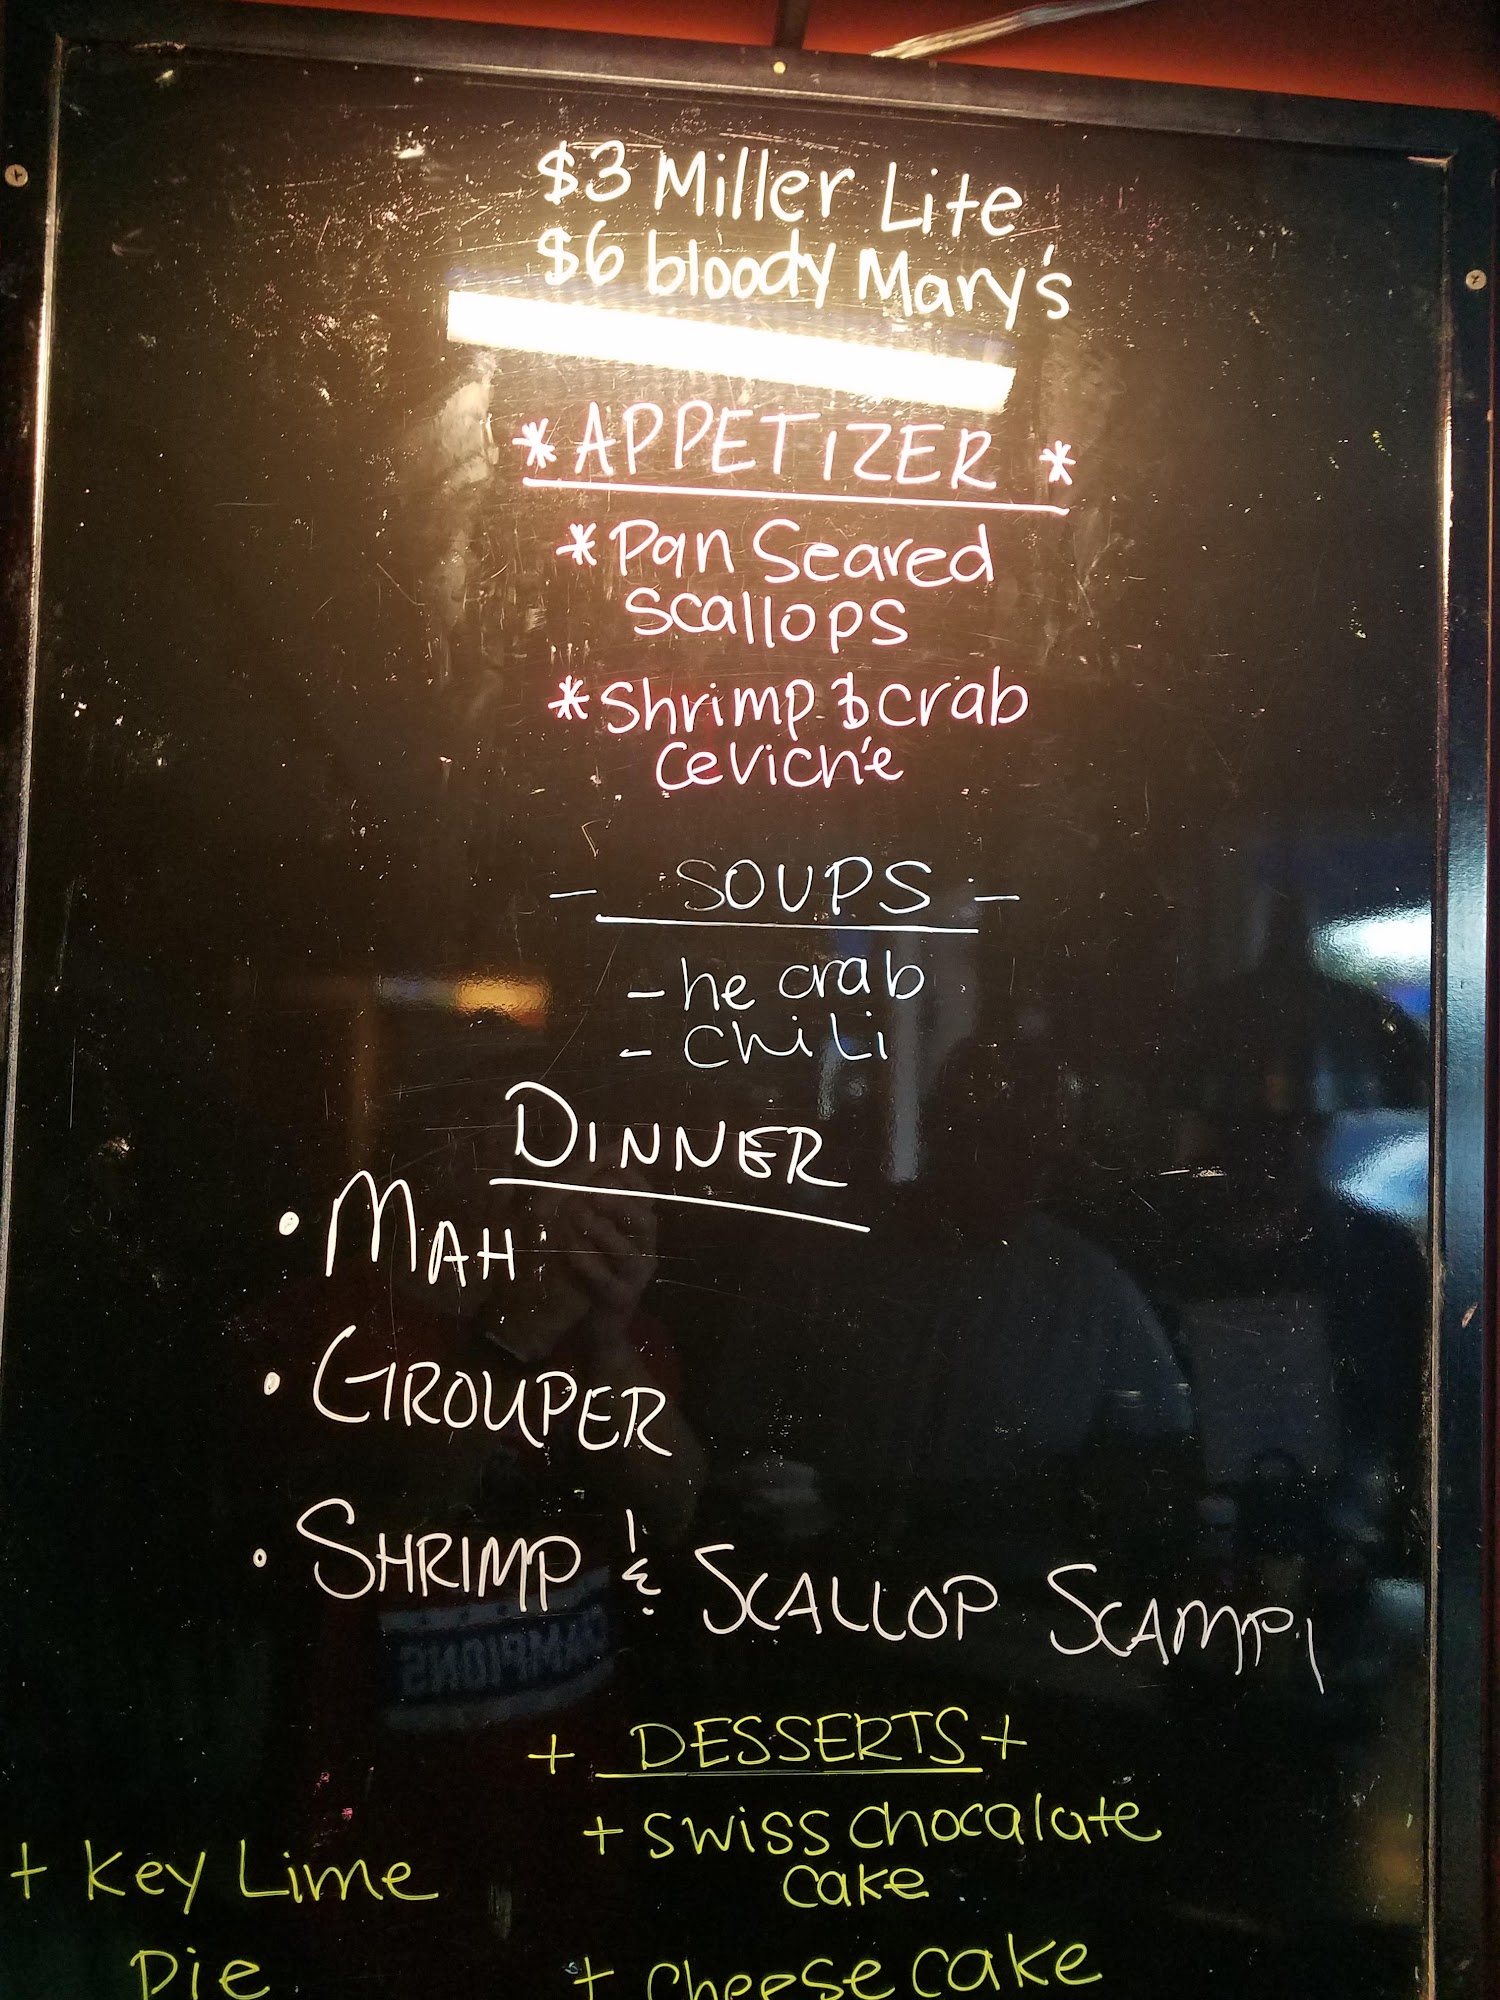 $3 Miller Lite
$6 bloody Mary's
* APPETIZER *
* Pan Seared
scallops
* Shrimp & crab
cevich'e
- SOUPS -
- he crab
- chili
DINNER
• MAH
• GROUPER
• SHRIMP & SCALLOP SCAMPI
CHAMPIONS
+ DESSERTS +
+ swiss chocalate
cake
+ Key Lime
Pie
+ cheese cake